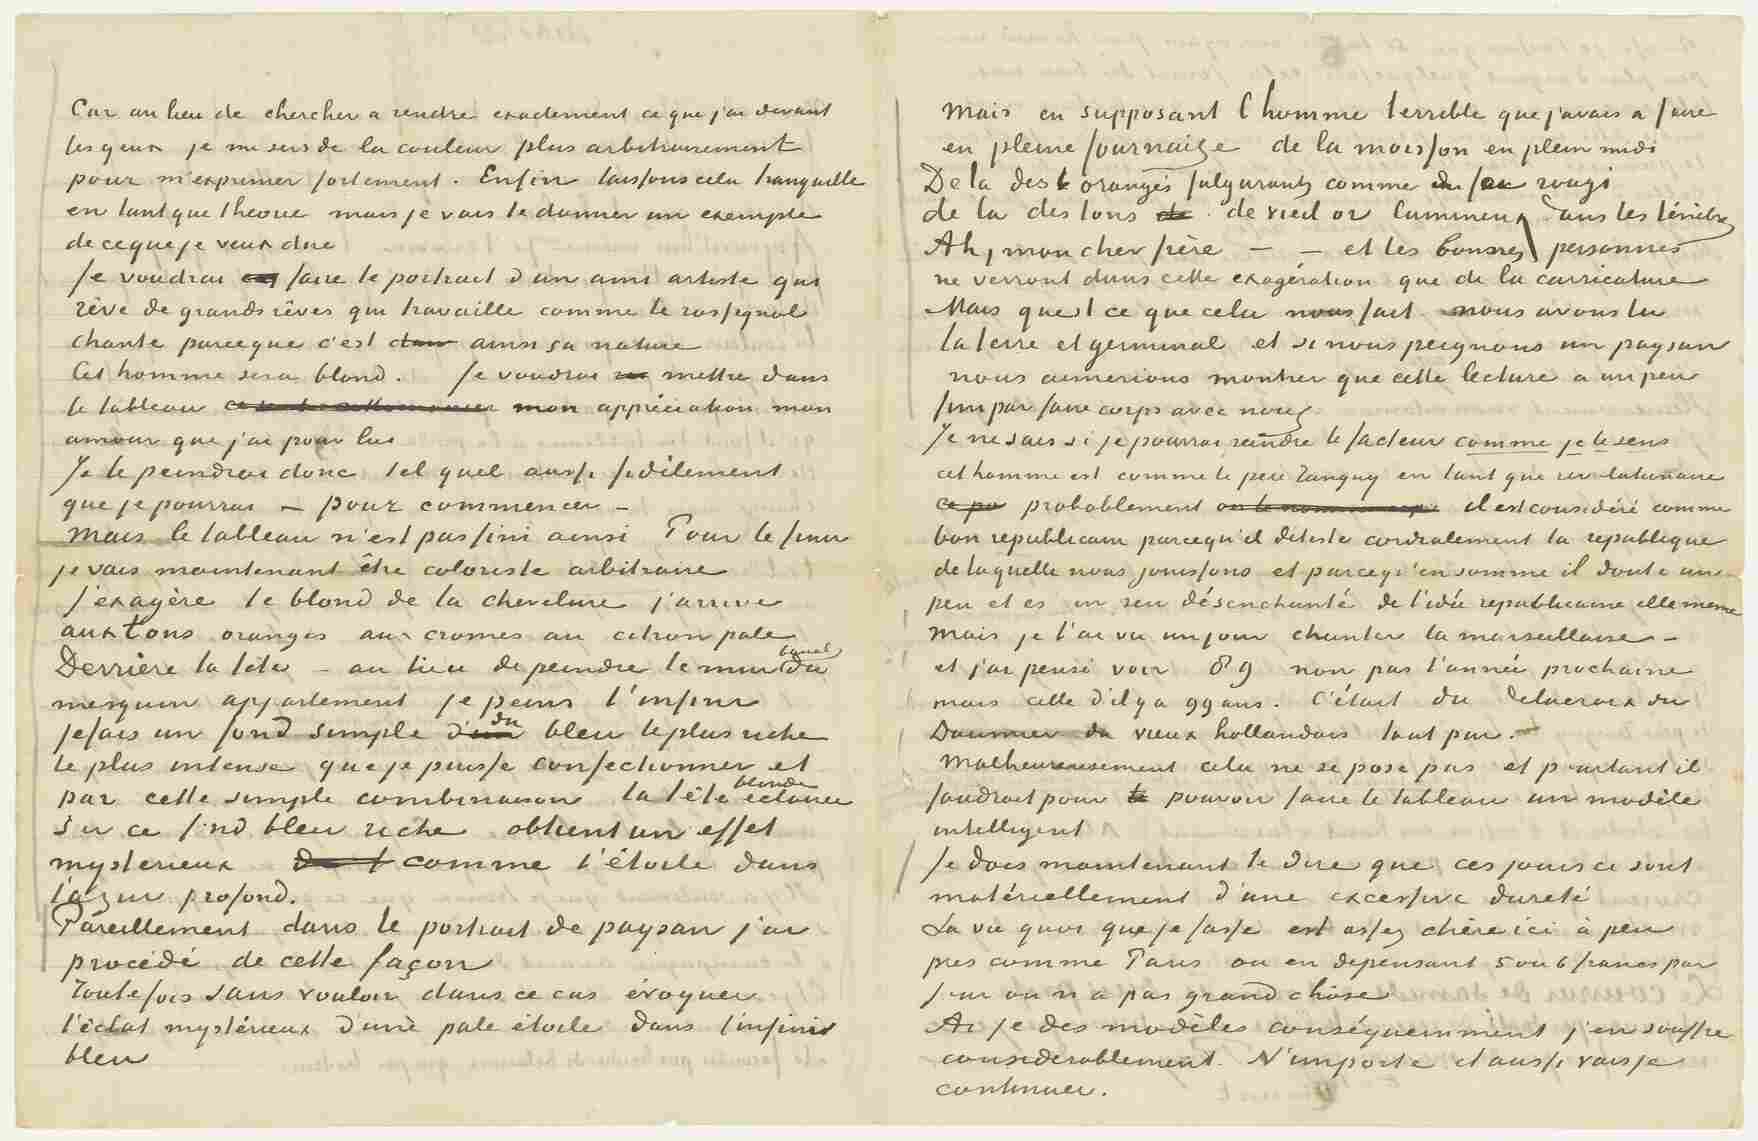 Car au lieu de chercher a rendre exactement ce que j'ai devant
les yeux je me sers de la couleur plus arbitrairement
pour m'exprimer fortement. Enfin laissons cela tranquille
en tant que theorie mais je vais te donner un exemple
de ce que je veux dire
Je voudrai faire le portrait d'un ami artiste qui
rêve de grands rêves qui travaille comme le rossignol
chante parceque c'est ainsi sa nature
Cet homme sera blond. Je voudrai mettre dans
le tableau mon appréciation mon
amour que j'ai pour lui
Je le peindrai donc tel quel aussi fidèlement
que je pourrai – pour commencer –
Mais le tableau n'est pas fini ainsi Pour le finir
je vais maintenant être coloriste arbitraire
J'exagère le blond de la chevelure j'arrive
aux tons orangés aux cromes au citron pale
Derrière la tête – au lieu de peindre le mur banal du
mesquin appartement je peins l'infini
je fais un fond simple du bleu le plus riche
le plus intense que je puisse confectionner et
par cette simple combinaison la tête blonde éclairée
sur ce fond bleu riche obtient un effet
mysterieux comme l'étoile dans
l'azur profond.
Pareillement dans le portrait de paysan j'ai
procédé de cette façon
Toutefois sans vouloir dans ce cas évoquer
l'éclat mystérieux d'une pale étoile dans l'infini
bleu
Mais en supposant l'homme terrible que j'avais a faire
en pleine fournaise de la moisson en plein midi
De la des orangés fulgurants comme du fer rougi
de la des tons de vieil or lumineux dans les ténèbres
Ah, mon cher frère – – et les bonnes personnes
ne verront dans cette exagération que de la carricature
Mais quest ce que cela nous fait nous avons lu
la terre et germinal et si nous peignons un paysan
nous aimerions montrer que cette lecture a un peu
fini par faire corps avec nous
Je ne sais si je pourrai peindre le facteur comme je le sens
cet homme est comme le pere Tanguy en tant que revolutionaire
probablement il est considéré comme
bon republicain parcequ'il deteste cordialement la republique
de laquelle nous jouissons et parcequ'en somme il doute un
peu et es un peu désenchanté de l'idée republicaine elle meme
Mais je l'ai vu un jour chanter la marseillaise –
et j'ai pensé voir 89 non pas l'année prochaine
mais celle d'il y a 99 ans. C'était du Delacroix du
Daumier du vieux hollandais tout pur. –
Malheureusement cela ne se pose pas et pourtant il
faudrait pour pouvoir faire le tableau un modèle
intelligent
Je dois maintenant te dire que ces jours ci sont
matériellement d'une excessive dureté
La vie quoi que je fasse est assez chère ici à peu
pres comme Paris ou en depensant 5 ou 6 francs par
jour on n'a pas grand chose
Ai je des modèles conséquemment j'en souffre
considerablement. N'importe et aussi vais je
continuer.